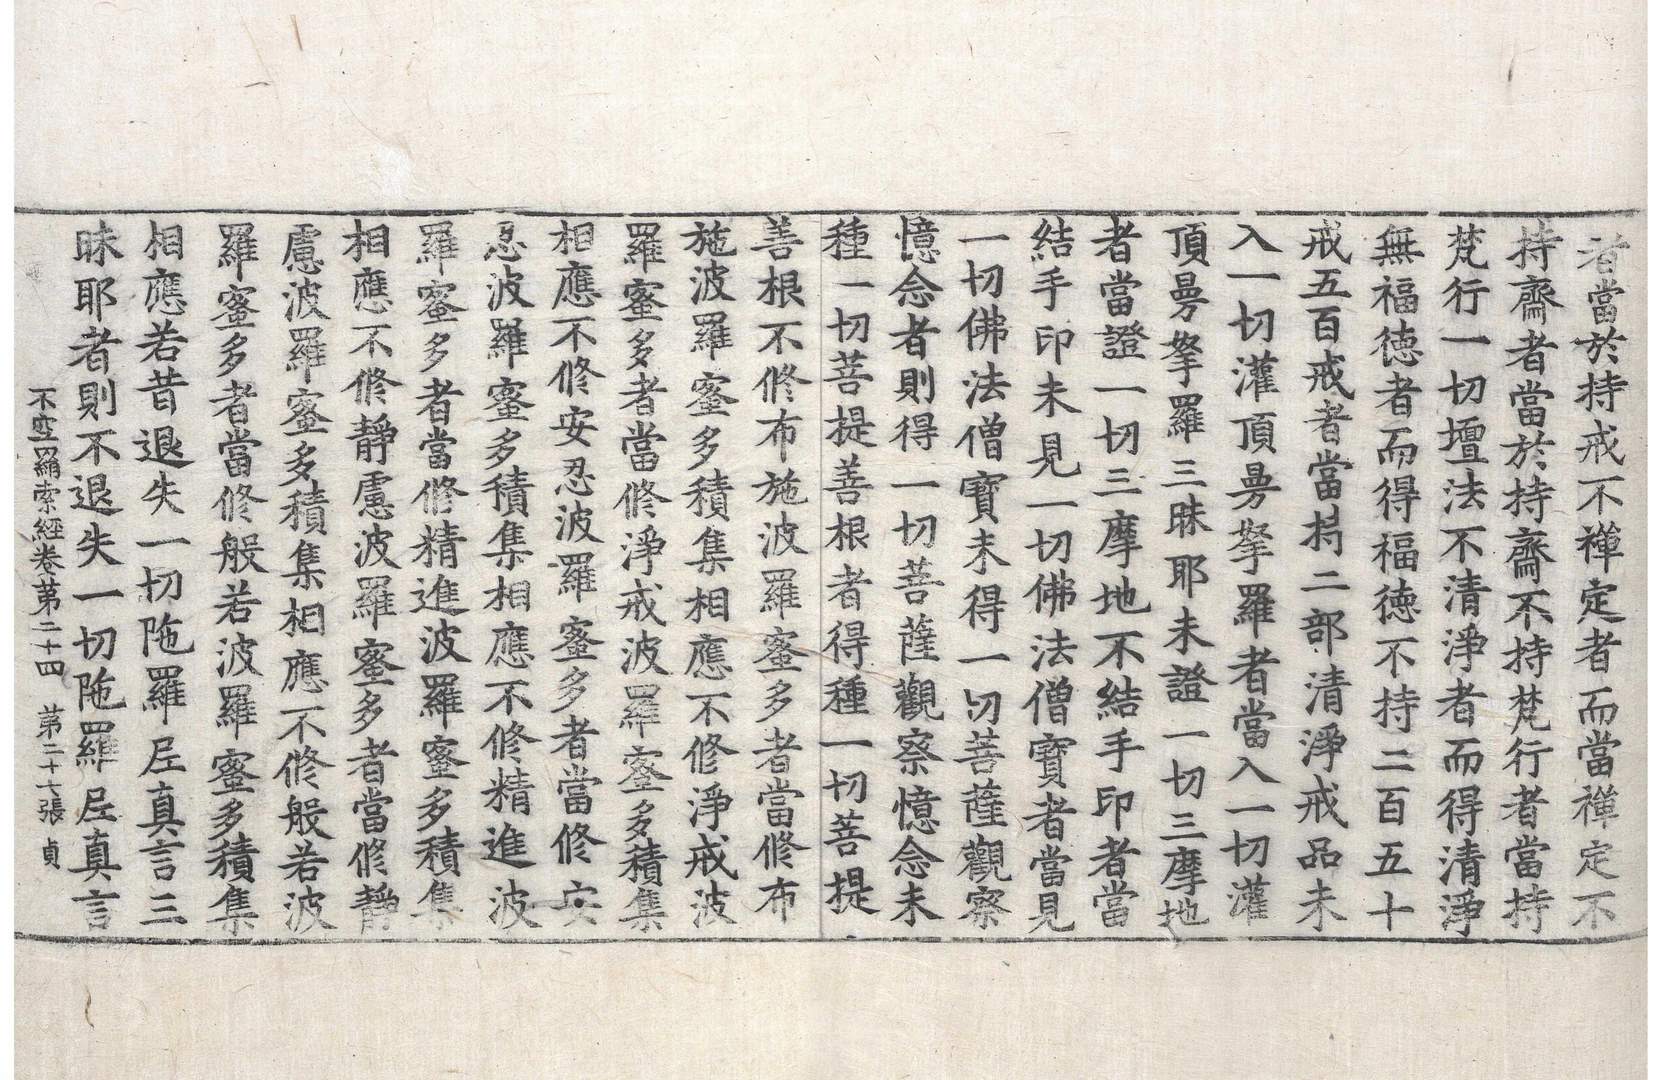 者當於持戒不禪定者而當禪定不
持齋者當於持齋不持梵行者當持
梵行一切壇法不清淨者而得清淨
無福德者而得福德不持二百五十
戒五百戒者當持二部清淨戒品未
入一切灌頂曼拏羅者當入一切灌
頂曼拏羅三昧耶未證一切三摩地
者當證一切三摩地不結手印者當
結手印未見一切佛法僧寶者當見
一切佛法僧寶未得一切菩薩觀察
憶念者則得一切菩薩觀察憶念未
種一切菩提善根者得種一切菩提
善根不修布施波羅蜜多者當修布
施波羅蜜多積集相應不修淨戒波
羅蜜多者當修淨戒波羅蜜多積集
相應不修安忍波羅蜜多者當修安
忍波羅蜜多積集相應不修精進波
羅蜜多者當修精進波羅蜜多積集
相應不修靜慮波羅蜜多者當修靜
慮波羅蜜多積集相應不修般若波
羅蜜多者當修般若波羅蜜多積集
相應若昔退失一切陁羅尼真言三
昧耶者則不退失一切陁羅尼真言
不空羂索經卷第二十四 第二十七張 貞